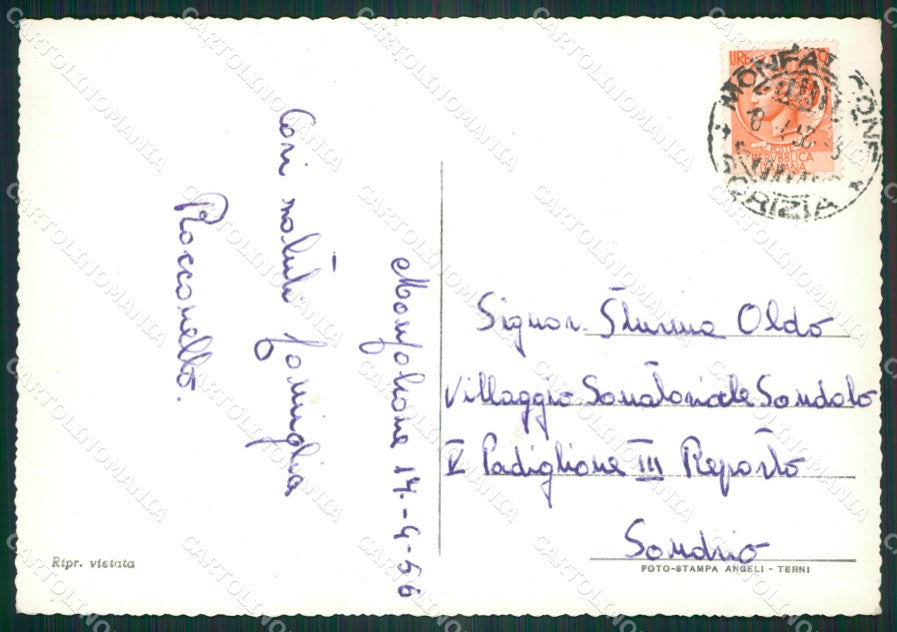 Monfalcone 17.-4-56
Cari saluti famiglia
Rocconello.
LIRE
POSTE
REPVBBLICA
ITALIANA
MONFALCONE
GORIZIA
Signor. Sturma Oldo
Villaggio Sanatoriale Sondalo
V Padiglione III Reparto
Sondrio
Ripr. vietata
FOTO-STAMPA ANGELI - TERNI
CARTOLINOMANIA